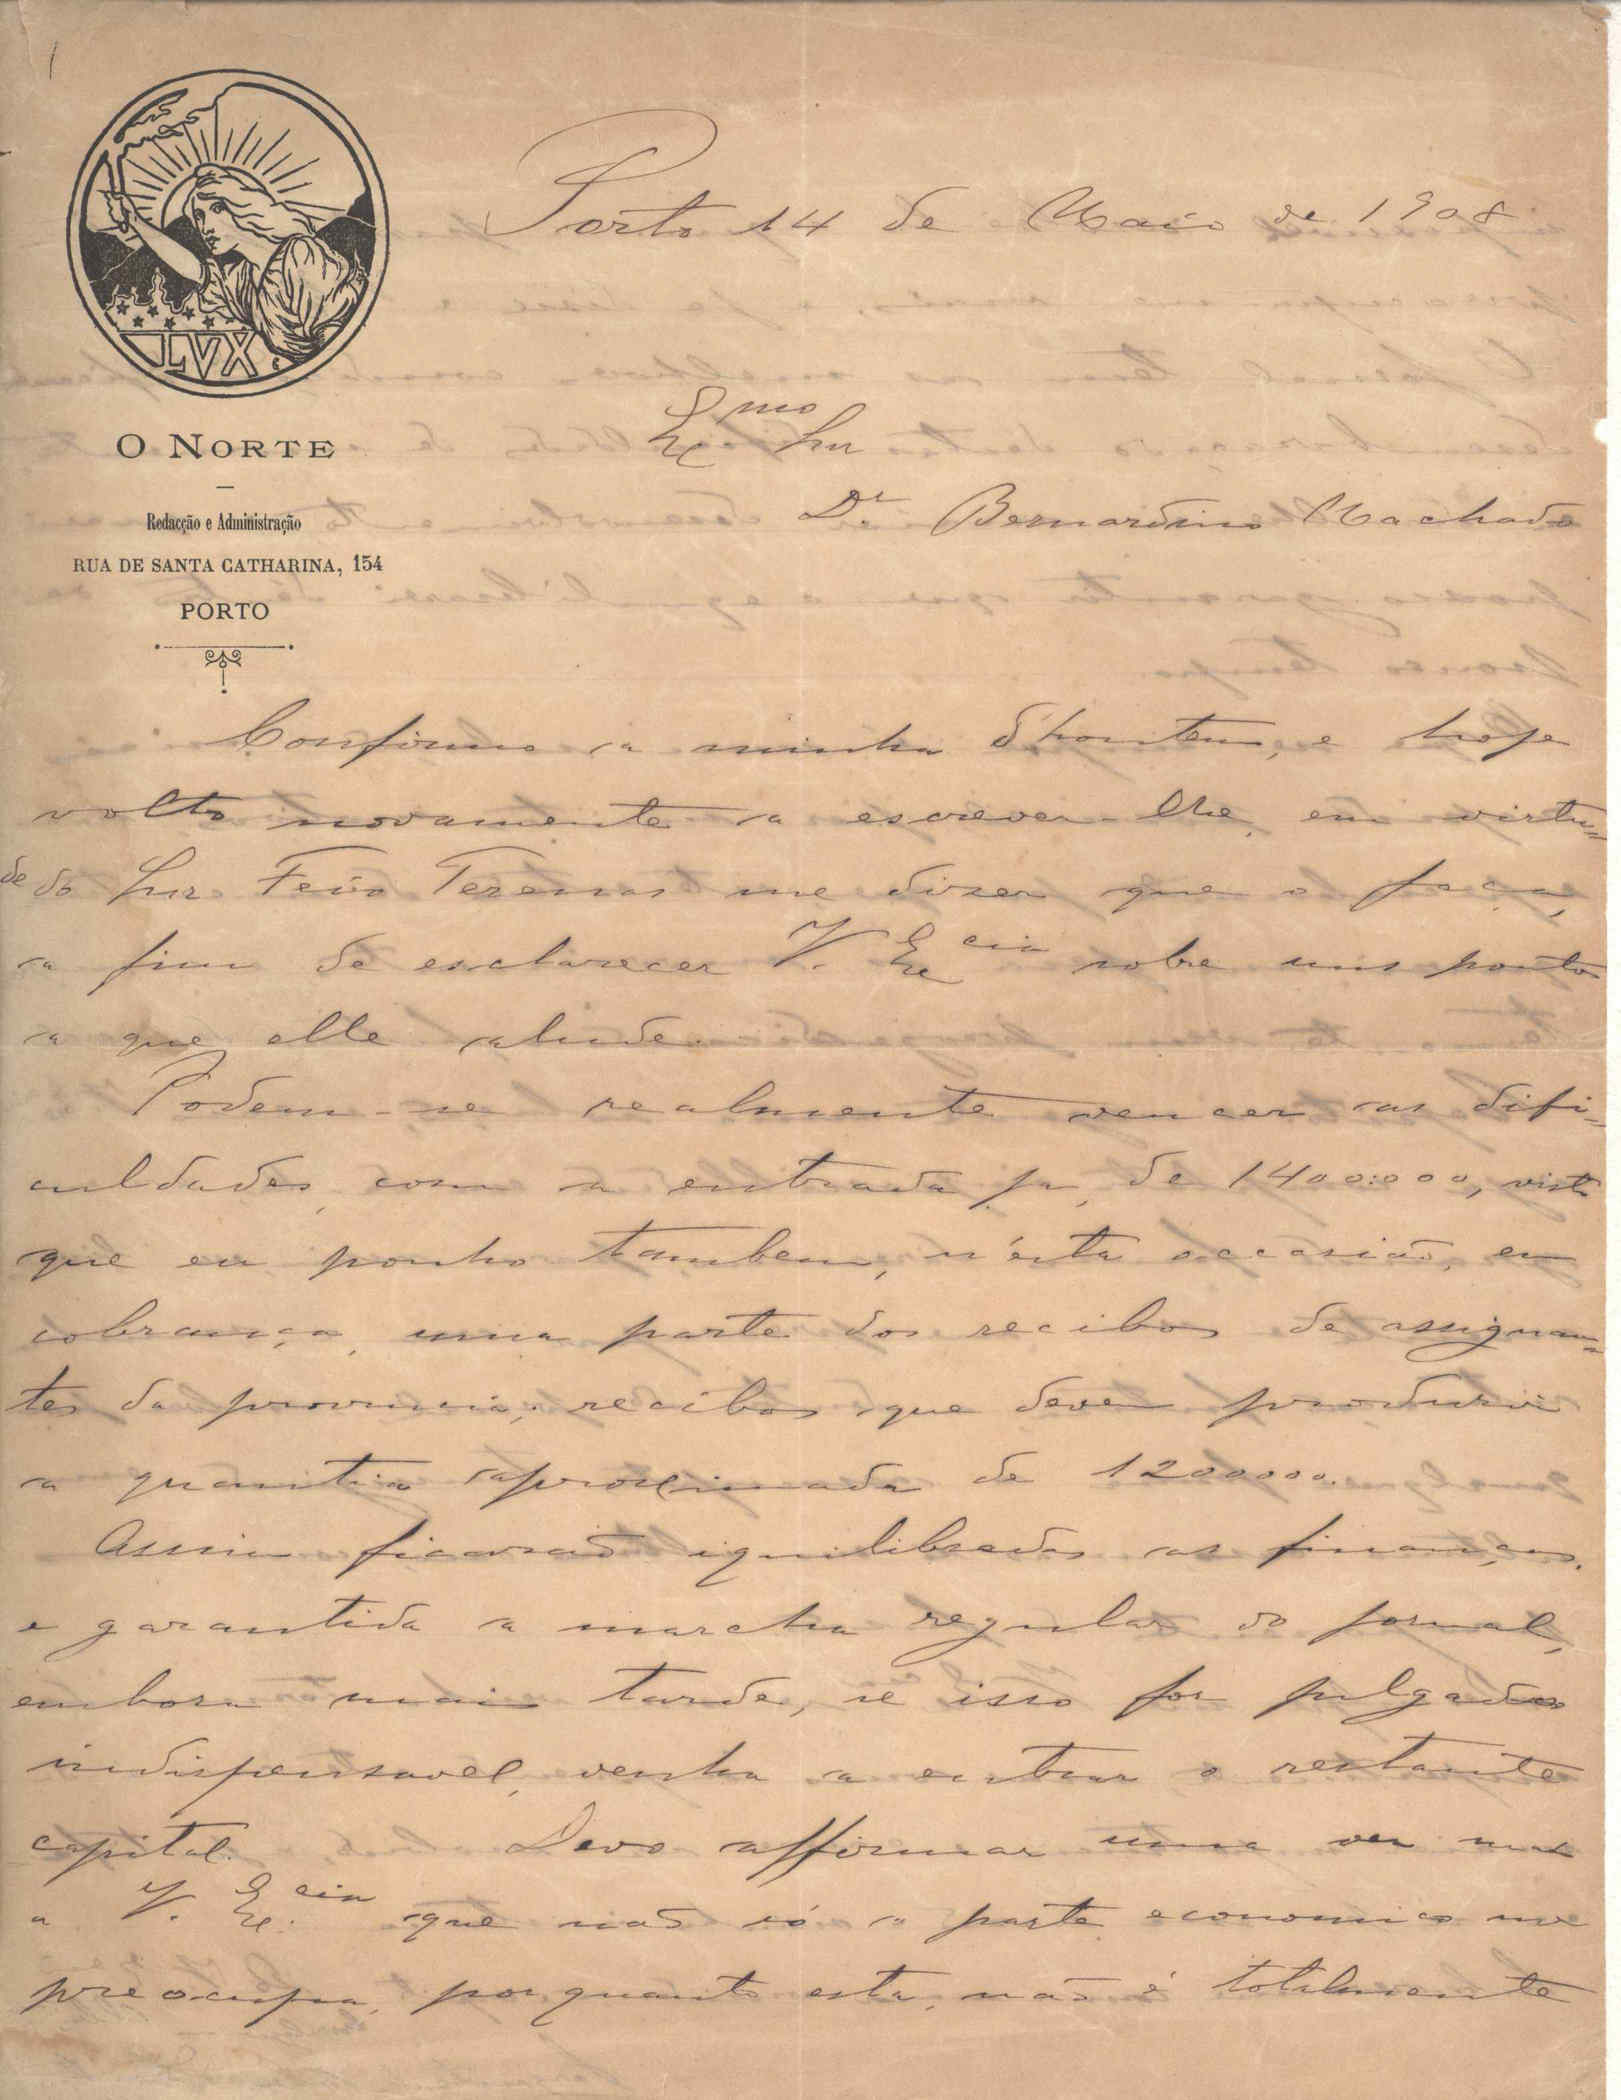 LVX
O NORTE
Redacção e Administração
RUA DE SANTA CATHARINA, 154
PORTO
Porto 14 de Maio de 1908
Exmo Snr
Dr. Bernardino Machado
Confirmo a minha d'hontem, e hoje
volto novamente a escrever-lhe, em virtu=
de do Snr. Feio Terenas me dizer que o faça,
a fim de esclarecer V. Excia sobre uns pontos
a que elle alude.
Podem-se realmente vencer as difi=
culdades, com a entrada já, de 1400:000, visto
que eu ponho tambem, n'esta occasião, em
cobrança, uma parte dos recibos de assignan=
tes da provincia; recibos que deve produzir
a quantia aproximada de 1200000.
Assim ficarão iquilibradas as finanças,
e garantida a marcha regular do jornal,
embora mais tarde, se isso for julgado
indispensavel, venha a entrar o restante
capital. Devo affirmar uma vez mais
a V. Excia que não só a parte economica me
preocupa, porquanto esta, não é totalmente